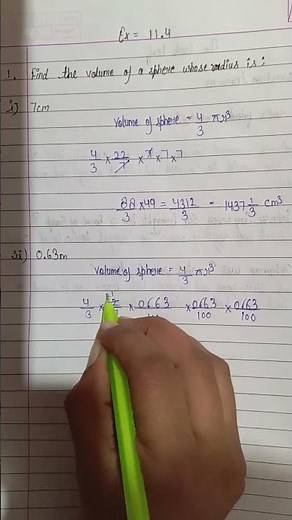 Ex = 11.4
1. Find the volume of a sphere whose radius is:
i) 7cm
Volume of sphere = 4/3 πr³
4/3 × 22/7 × 7 × 7 × 7
88/3 × 49 = 4312/3 = 1437 1/3 cm³
ii) 0.63m
Volume of sphere = 4/3 πr³
4/3 × × 0.63/100 × 0.63/100 × 0.63/100